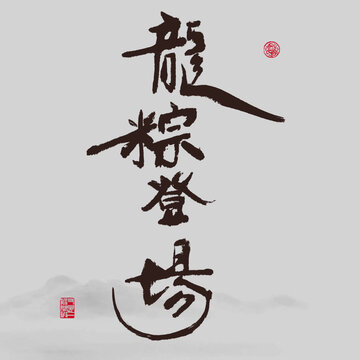 龍粽登場